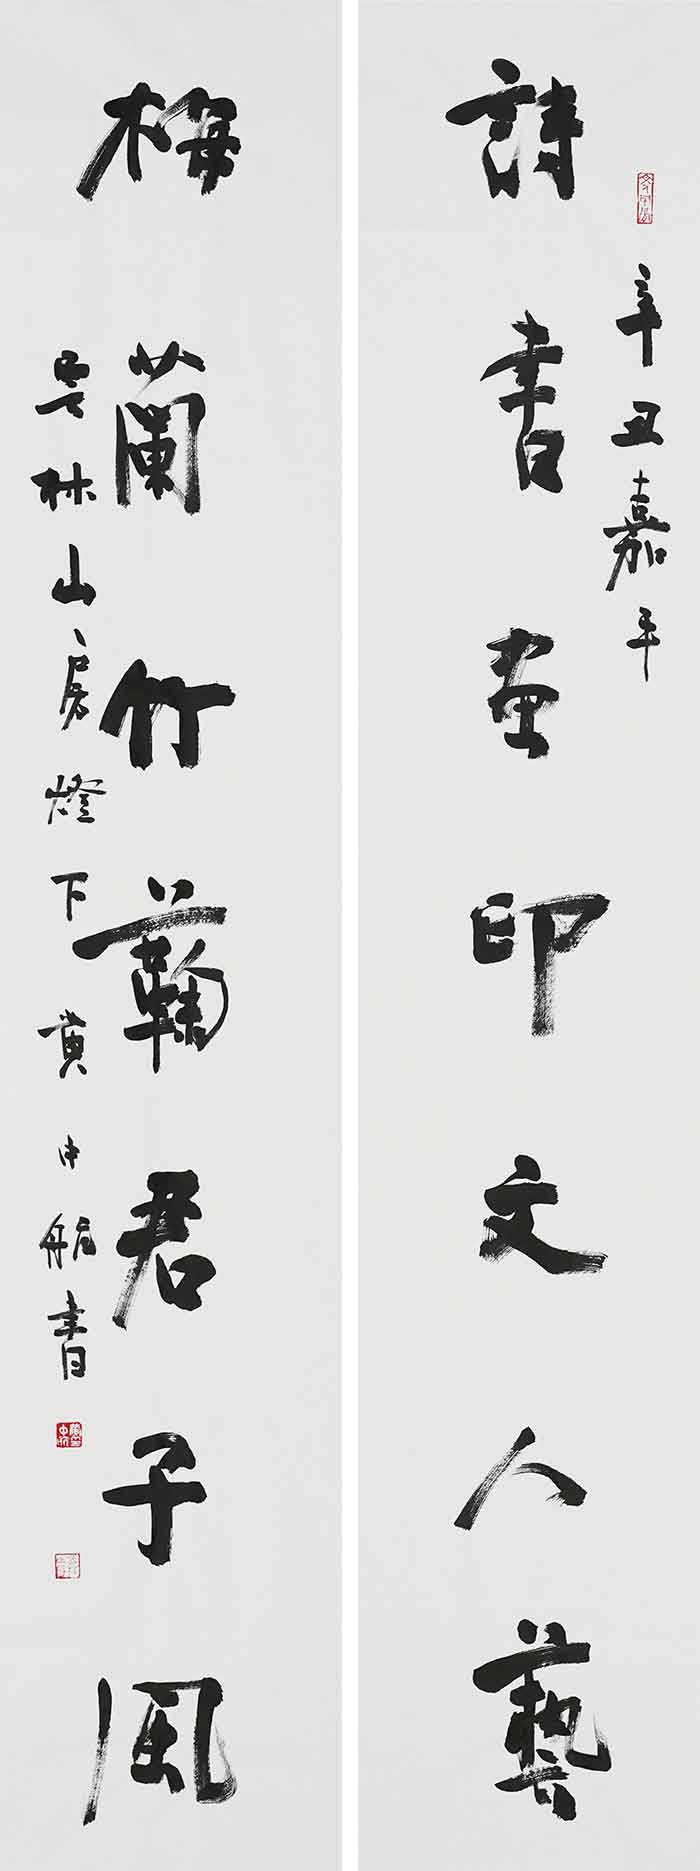 辛丑嘉平
詩書画印文人藝
梅蘭竹菊君子風
林山房燈下黄中航書